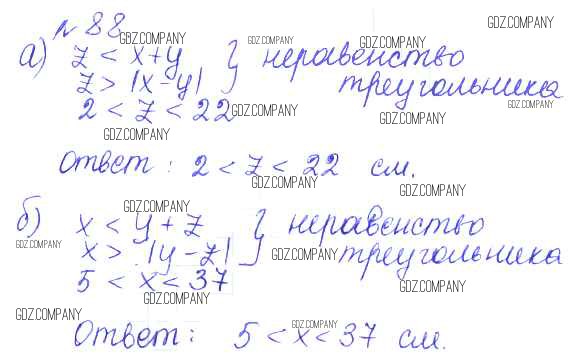 № 88
GDZ.COMPANY
GDZ.COMPANY GDZ.COMPANY GDZ.COMPANY
а) z < x + y } неравенство
z > |x - y| треугольника
GDZ.COMPANY
2 < z < 22 GDZ.COMPANY GDZ.COMPANY
GDZ.COMPANY
Ответ : 2 < z < 22 см.
GDZ.COMPANY GDZ.COMPANY
GDZ.COMPANY
б) x < y + z } неравенство
GDZ.COMPANY x > |y - z| GDZ.COMPANY треугольника
5 < x < 37 GDZ.COMPANY
GDZ.COMPANY
GDZ.COMPANY GDZ.COMPANY
Ответ : 5 < x < 37 см.